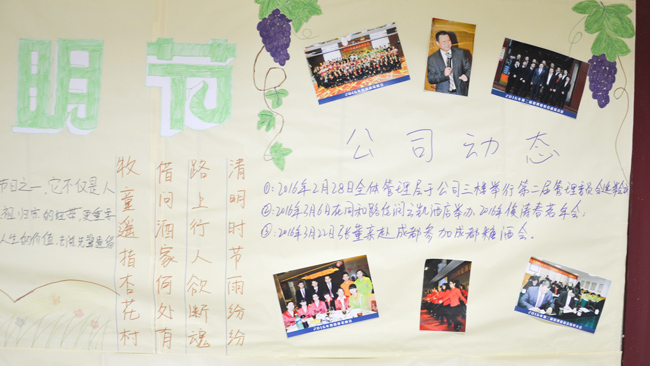 明节
节日之一,它不仅是人
祖归宗的纽带,更重要
人生的价值,
清明时节雨纷纷
路上行人欲断魂
借问酒家何处有
牧童遥指杏花村
公司动态
①:2016年2月28日全体管理层于公司三楼举行第二届管理委员会选举
②:2016年3月6日在同和路佳润云凯酒店举办2016年 春茗年会.
③:2016年3月22日张董亲赴成都参加成都糖酒会.